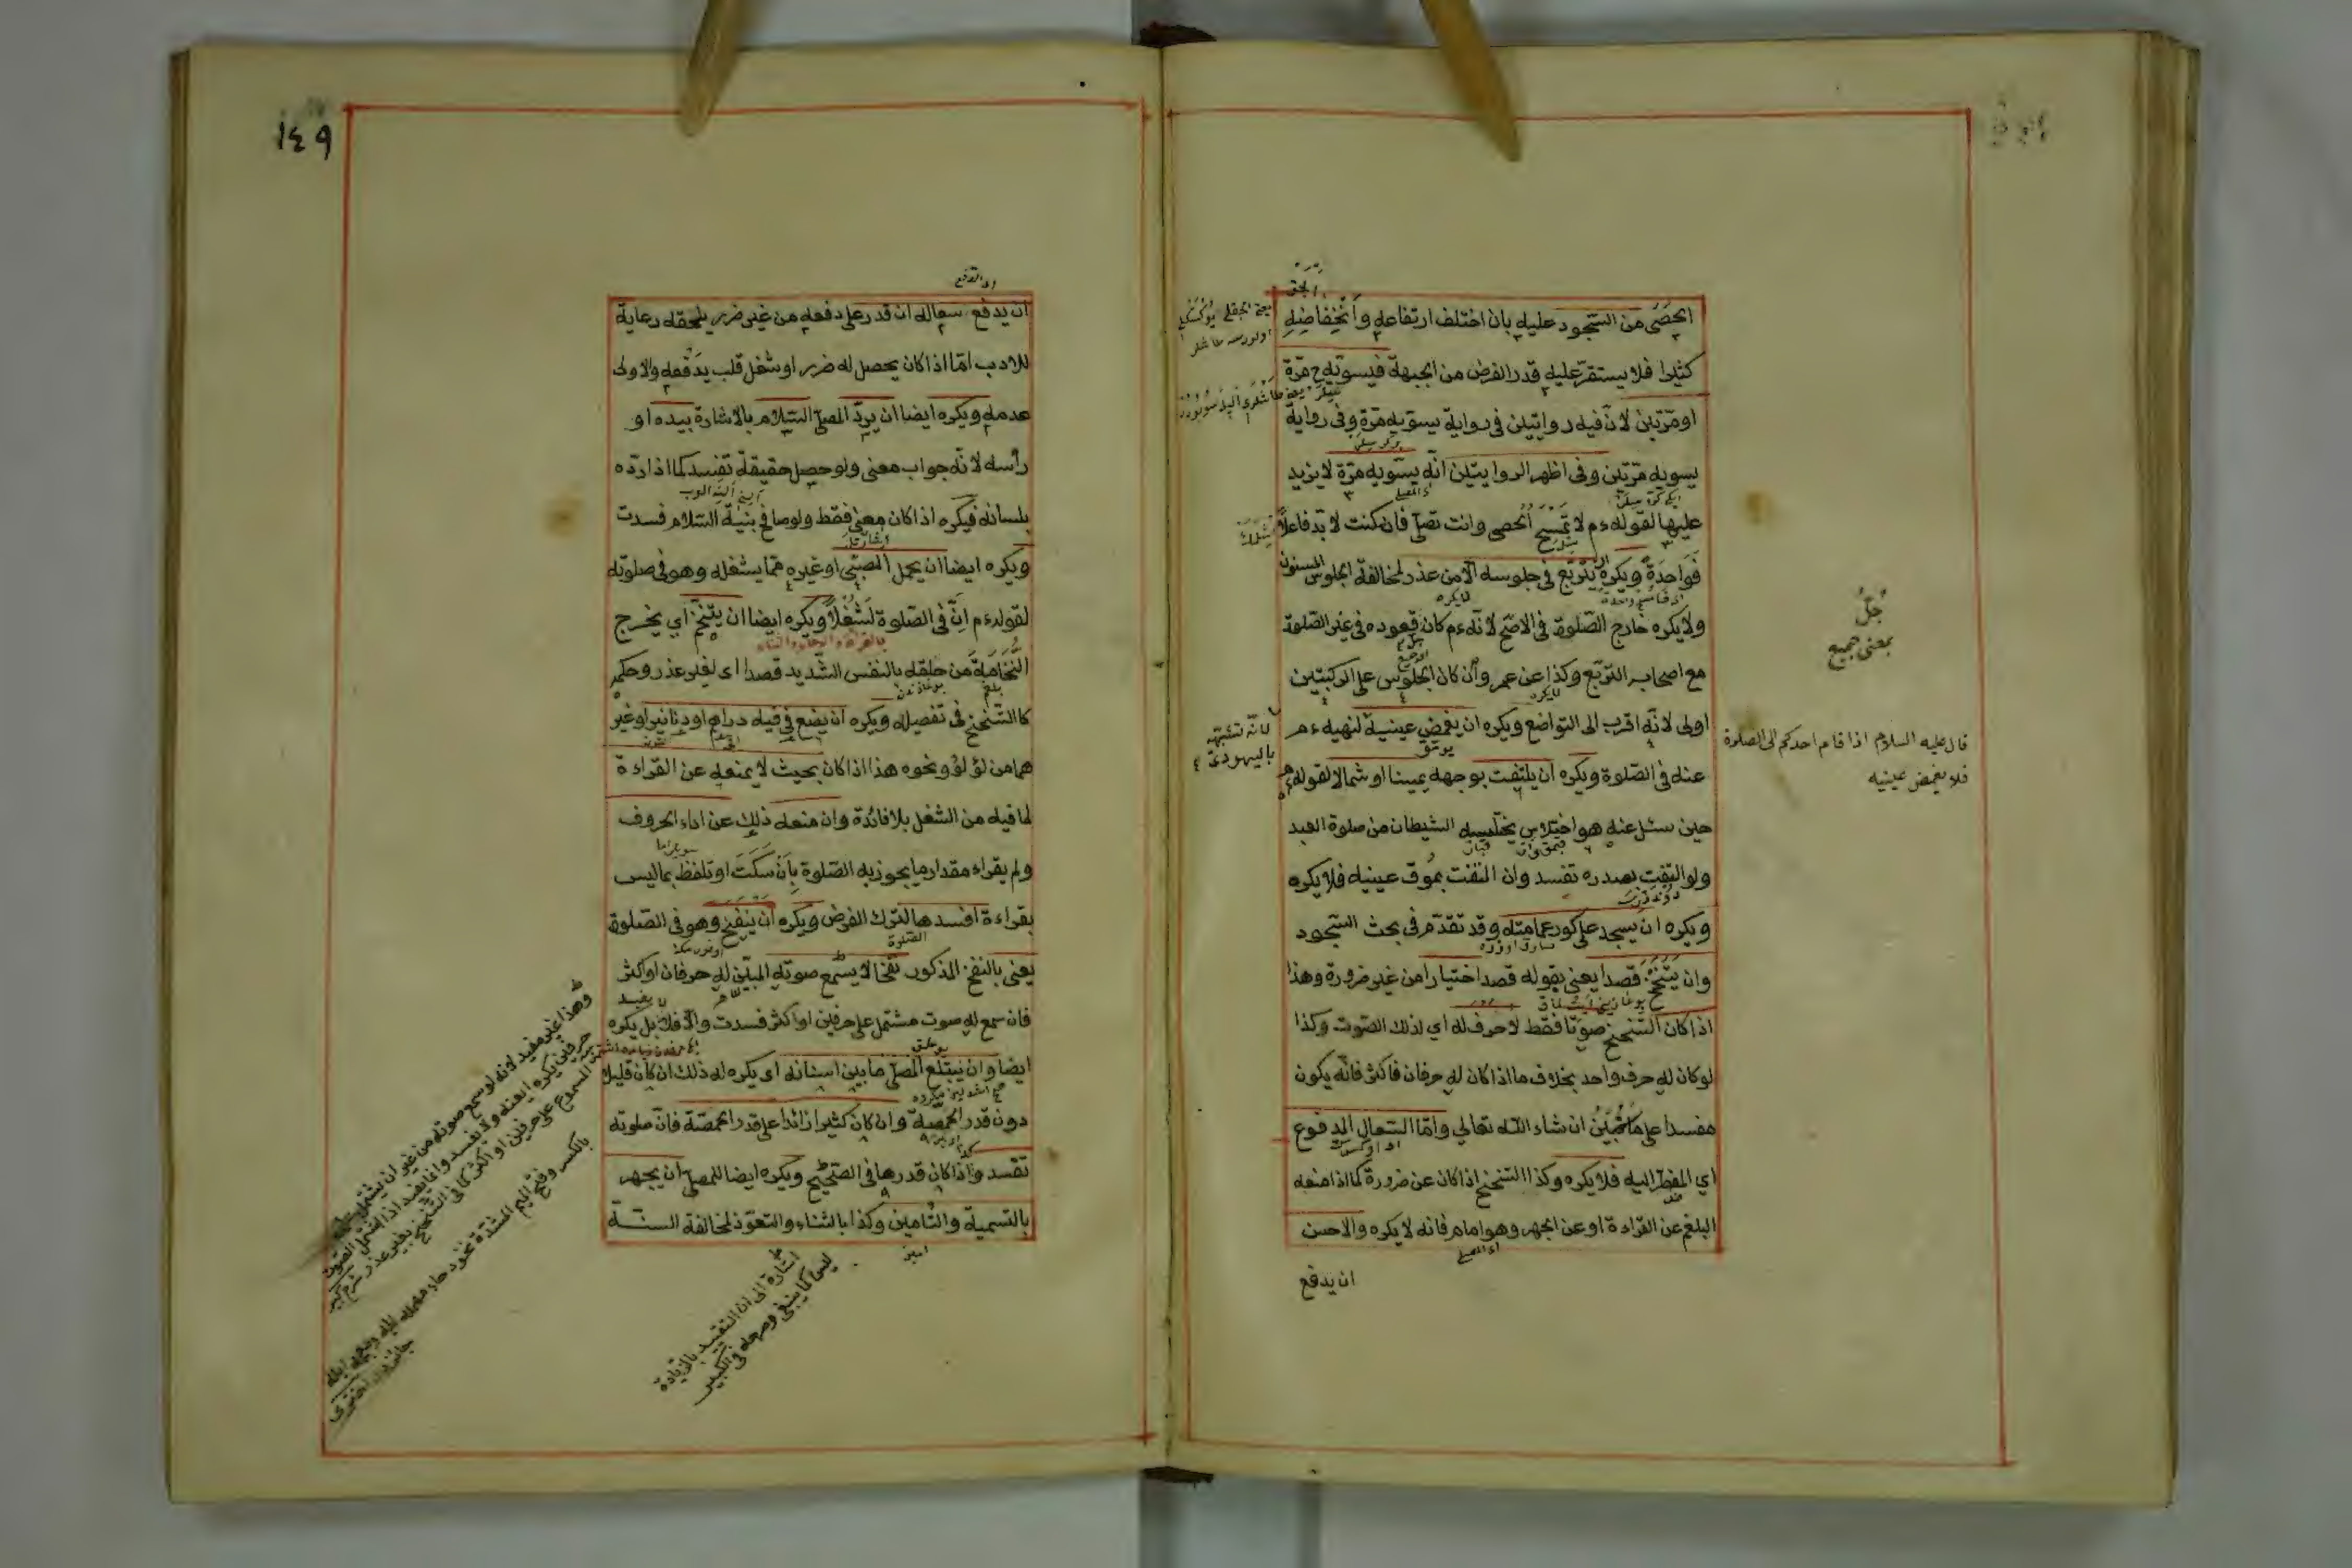 الحصى من السجود عليه بان اختلف ارتفاعه وانخفاضه
كثيرا فلا يستقر عليه قدر الفرض من الجبهة فيسويه ح مرة
او مرتين لان فيه روايتين فى رواية يسويه مرة وفى رواية
يسويه مرتين وفى اظهر الروايتين انه يسويه مرة لا يزيد
عليها لقوله ءم لا تمسح الحصى وانت تصلى فان كنت لا بد فاعلا
فواحدة ويكره التربع فى جلوسه الا من عذر لمخالفة الجلوس المسنون
ولا يكره خارج الصلوة فى الاصح لانه ءم كان قعوده فى غير الصلوة
مع اصحابه التربع وكذا عن عمر وان كان الجلوس على الركبتين
اولى لانه اقرب الى التواضع ويكره ان يغمض عينيه لنهيه ءم
عنه فى الصلوة ويكره ان يلتفت بوجهه يمينا او شمالا لقوله ءم
حين سئل عنه هو اختلاس يختلسه الشيطان من صلوة العبد
ولو التفت بصدره تفسد وان التفت بموق عينيه فلا يكره
ويكره ان يسجد على كور عمامته وقد تقدم فى بحث السجود
وان يتنحنح قصدا يعنى بقوله قصدا اختيارا من غير ضرورة وهذا
اذا كان التنحنح صوتا فقط لا حرف له اي لذلك الصوت وكذا
لو كان له حرف واحد بخلاف ما اذا كان له حرفان فاكثر فانه يكون
مفسدا على ما نبين ان شاء الله تعالي واما السعال المدفوع
اي المضطر اليه فلا يكره وكذا التنحنح اذا كان عن ضرورة كما اذا منعه
البلغم عن القراءة او عن الجهر وهو امام فانه لا يكره والاحسن
ان يدفع
جل
بمعنى جميع
قال عليه السلام اذا قام احدكم الى الصلوة
فلا يغمض عينيه
لانه تشبه
باليهودى
١٤٩
اى الدفع
ان يدفع سعاله ان قدر على دفعه من غير ضرر يلحقه رعاية
للادب اما اذا كان يحصل له ضرر او شغل قلب بدفعه والاولى
عدمه ويكره ايضا ان يرد المصلى السلام بالاشارة بيده او
رأسه لانه جواب معنى ولو حصل حقيقة تفسد كما اذا رده
بلسانه فيكره اذا كان معنى فقط ولو صافح بنية السلام فسدت
ويكره ايضا ان يحمل الصبى او غيره مما يشغله وهو فى صلوته
لقوله ءم ان فى الصلوة لشغلا ويكره ايضا ان يتنخم اي يخرج
النخامة من حلقه بالنفس الشديد قصدا اى لغير عذر وحكمه
كالتنحنح فى تفصيله ويكره ان يضع فى فيه دراهم او دنانير او غير
هما من لؤلؤ ونحوه هذا اذا كان بحيث لا يمنعه عن القراءة
لما فيه من الشغل بلا فائدة وان منعه ذلك عن اداء الحروف
ولم يقراء مقدار ما يجوز به الصلوة بان سكت او تلفظ بما ليس
بقراءة افسدها لترك الفرض ويكره ان ينفخ وهو فى الصلوة
يعنى بالنفخ المذكور نفخا لا يسمع صوته المبين له حرفان او اكثر
فان سمع له صوت مشتمل على حرفين او اكثر فسدت والا فلا بل يكره
ايضا وان يبتلع المصلى ما بين اسنانه اى يكره له ذلك ان كان قليلا
دون قدر الحمصة وان كان كثيرا زائدا على قدر الحمصة فان صلوته
تفسد واذا كان قدرها فى الصحيح ويكره ايضا للمصلى ان يجهر
بالتسمية والتامين وكذا بالثناء والتعوذ لمخالفة السنة
اشارة الى ان التقييد بالزيادة
ليس كما ينبغى وصححه فى الكبير
وهذا غير مفيد لانه لو سمع صوته من غير ان يشتمل على